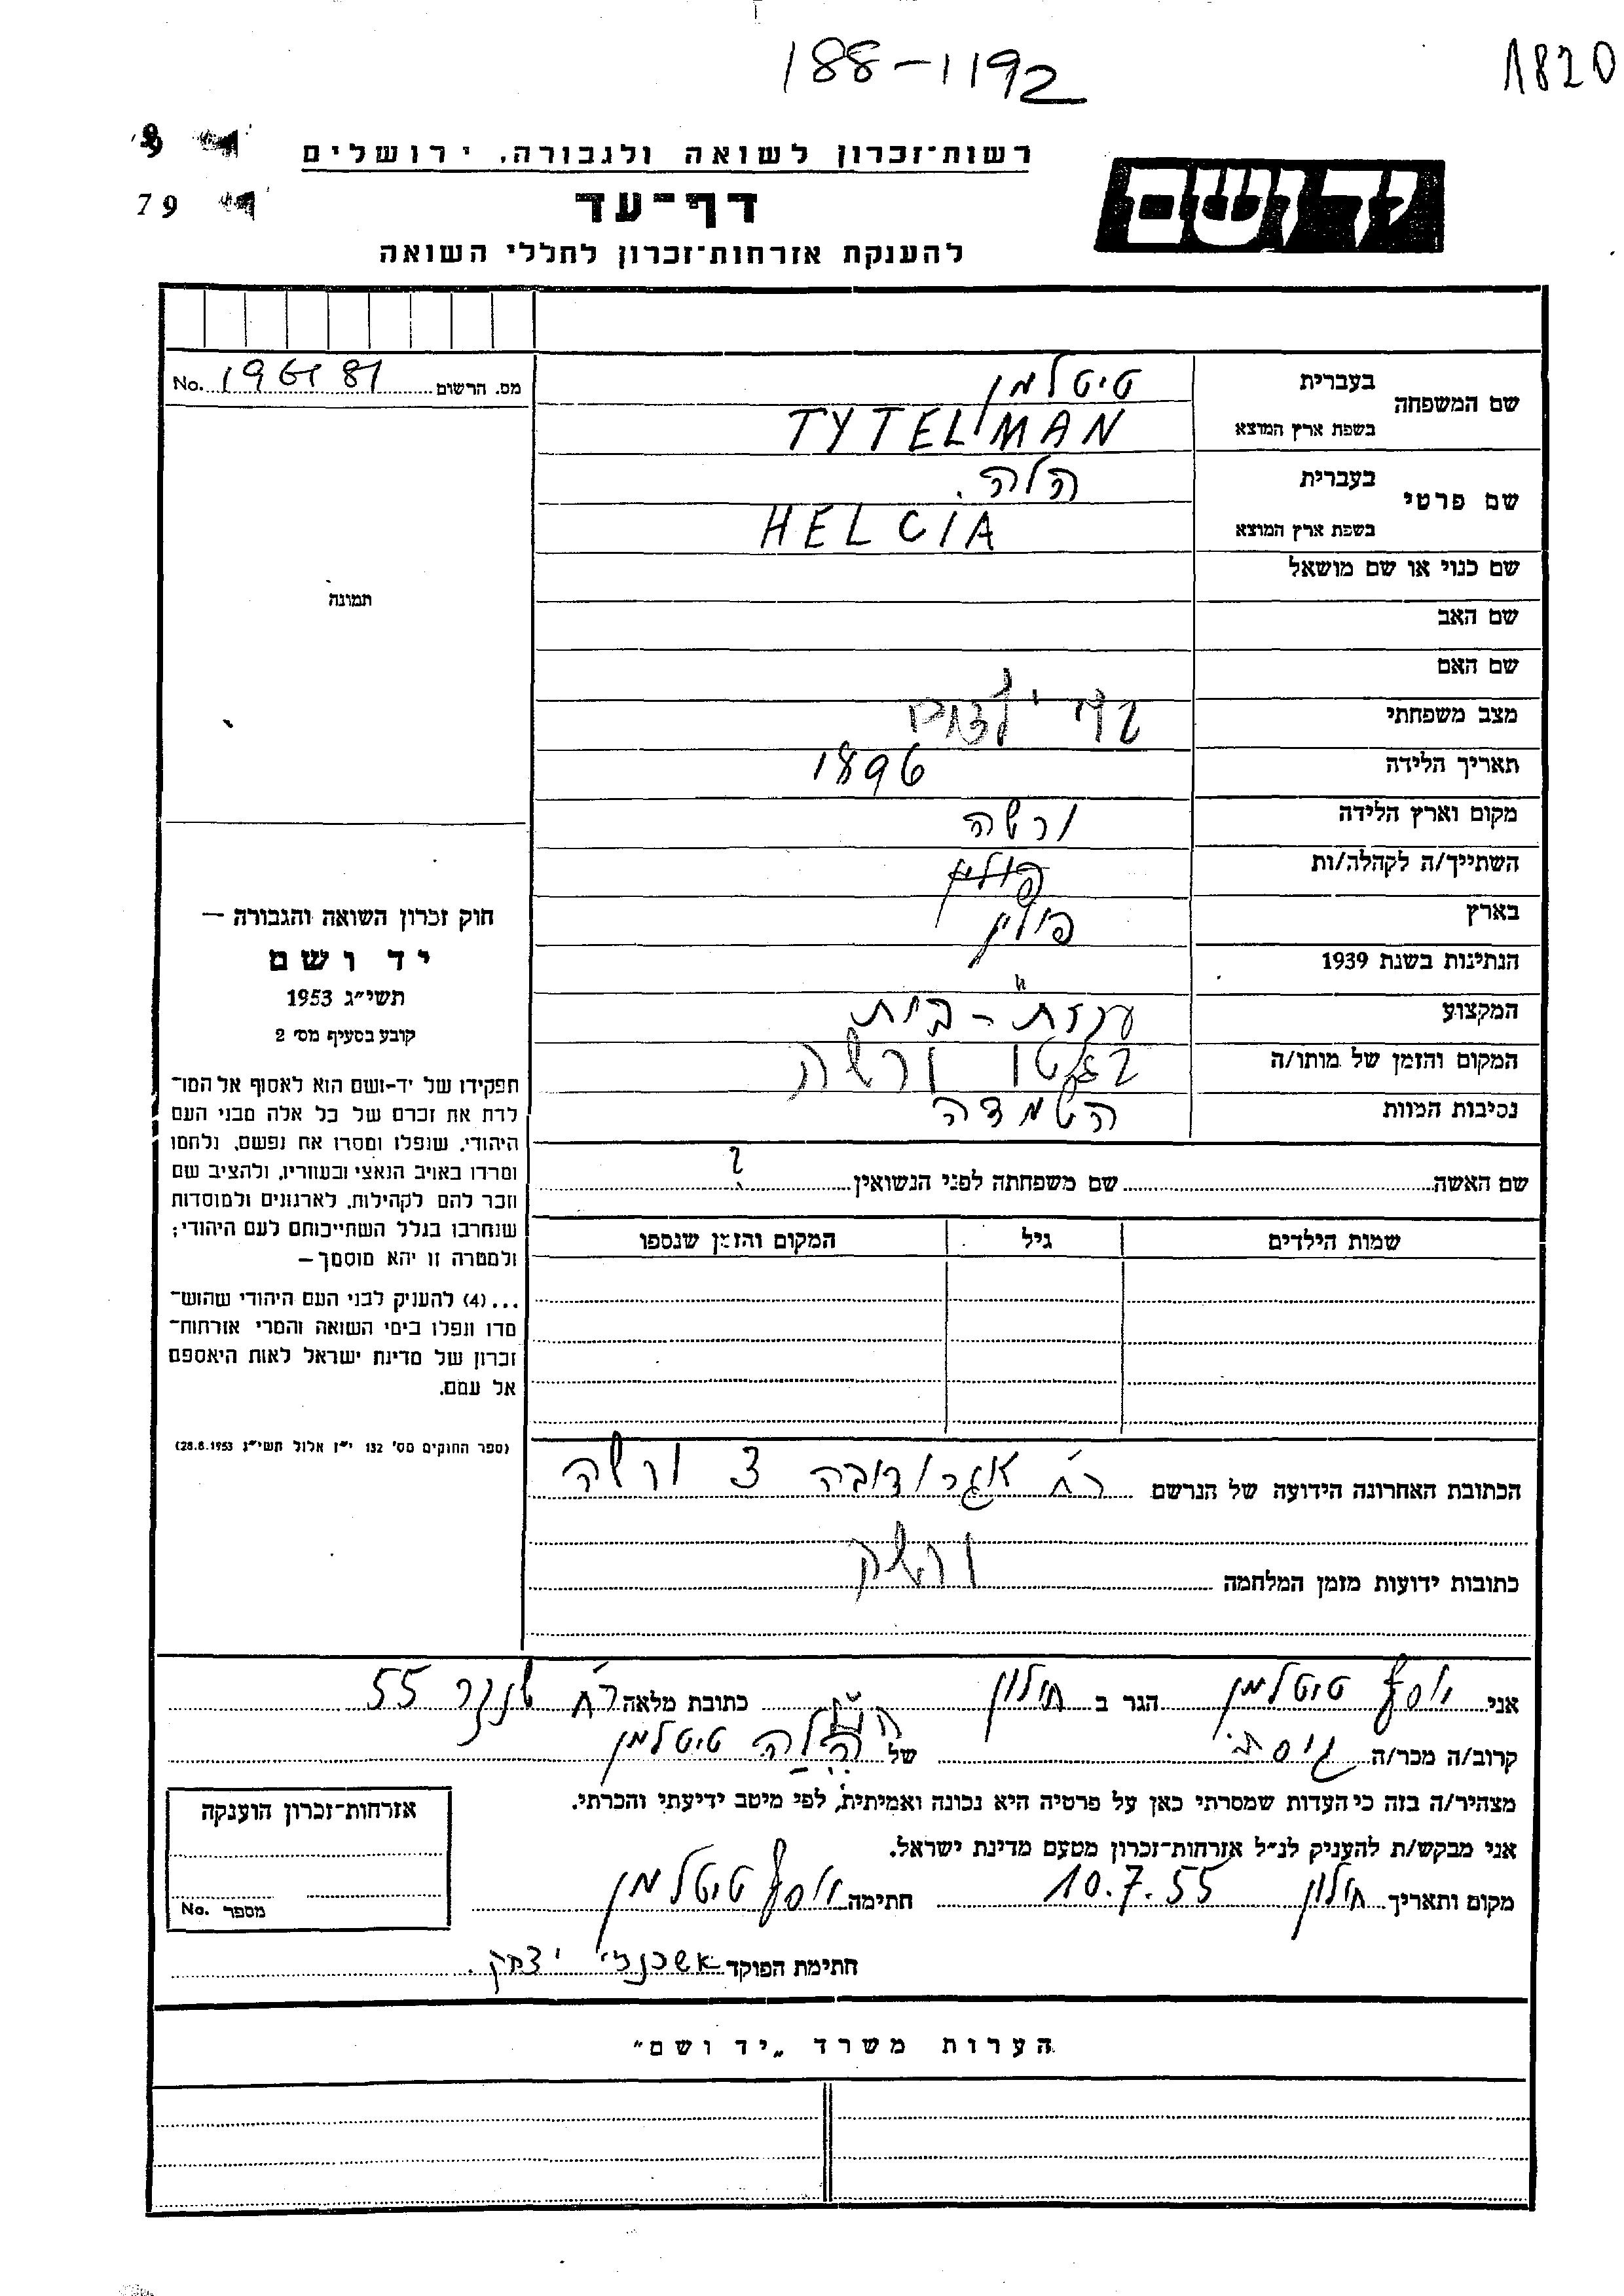 188-1192
1820
99
79
רשות־זכרון לשואה ולגבורה, ירושלים
יד ושם
דף־עד
להענקת אזרחות־זכרון לחללי השואה
שם המשפחה בעברית טיטלמן
בשפת ארץ המוצא TYTELMAN
שם פרטי בעברית הלה.
בשפת ארץ המוצא HELCIA
שם כנוי או שם מושאל
שם האב
שם האם
מצב משפחתי
תאריך הלידה 1896
מקום וארץ הלידה ורשה
השתייך/ה לקהלה/ות פולין
בארץ פולין
הנתינות בשנת 1939 "
המקצוע עקרת-בית
המקום והזמן של מותו/ה בגטו ורשה
נסיבות המוות השמדה
שם האשה שם משפחתה לפני הנשואין ?
שמות הילדים גיל המקום והזמן שנספו
הכתובת האחרונה הידועה של הנרשם רח' אגרודובה 3 ורשה
כתובות ידועות מזמן המלחמה ורשה
מס. הרשום No. 196181
תמונה
חוק זכרון השואה והגבורה —
יד ושם
תשי״ג 1953
קובע בסעיף מס׳ 2
תפקידו של יד-ושם הוא לאסוף אל המו־
לדת את זכרם של כל אלה מבני העם
היהודי, שנפלו ומסרו את נפשם, נלחמו
ומרדו באויב הנאצי ובעוזריו, ולהציב שם
וזכר להם לקהילות, לארגונים ולמוסדות
שנחרבו בגלל השתייכותם לעם היהודי;
ולמטרה זו יהא מוסמך—
...(4) להעניק לבני העם היהודי שהוש־
מדו ונפלו בימי השואה והמרי אזרחות־
זכרון של מדינת ישראל לאות היאספם
אל עמם.
(ספר החוקים מס׳ 132 י״ז אלול תשי״ג 28.8.1953)
אני יוסף טיטלמן הגר ב חולון כתובת מלאה רח' שנקר 55
קרוב/ה מכר/ה גיסתי של הלה טיטלמן
מצהיר/ה בזה כי העדות שמסרתי כאן על פרטיה היא נכונה ואמיתית, לפי מיטב ידיעתי והכרתי.
אני מבקש/ת להעניק לנ״ל אזרחות־זכרון מטעם מדינת ישראל.
מקום ותאריך חולון 10.7.55 חתימה יוסף טיטלמן
חתימת הפוקד אשכנזי יצחק.
אזרחות־זכרון הוענקה
מספר No.
הערות משרד „יד ושם״